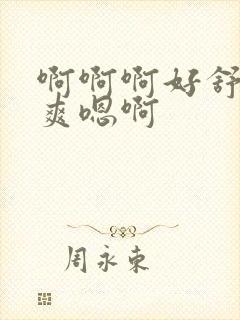 啊啊啊好舒
爽嗯啊
周永东